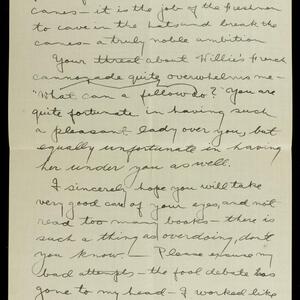 canes — it is the job of the freshman
to cave in the hats and break the
canes — a truly noble ambition
Your threat about Willie's French
cannonade quite overwhelms me —
"What can a fellow do?" You are
quite fortunate in having such
a pleasant lady over you, but
equally unfortunate in having
her under you as well.
I sincerely hope you will take
very good care of your eyes, and not
read too many books — there is
such a thing as overdoing, don't
you know. — Please excuse my
bad attempts — the fool debate has
gone to my head — I worked like